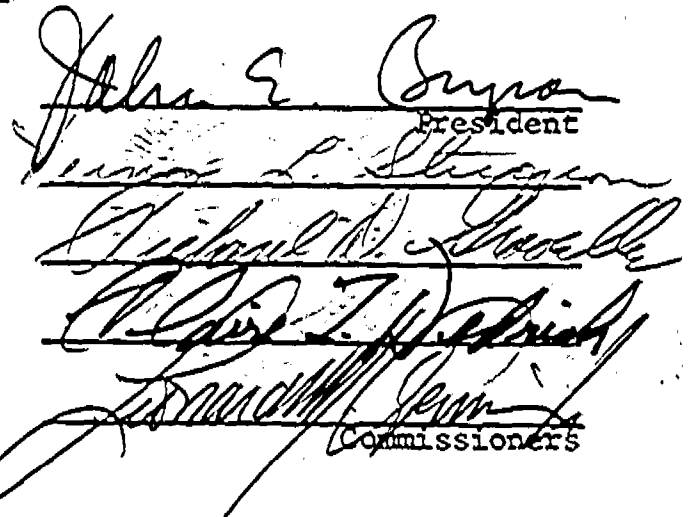 John E. Bryson
President
Vernon L. Sturgeon
Richard D. Gravelle
Claire T. Dedrick
Leonard M.
Commissioners